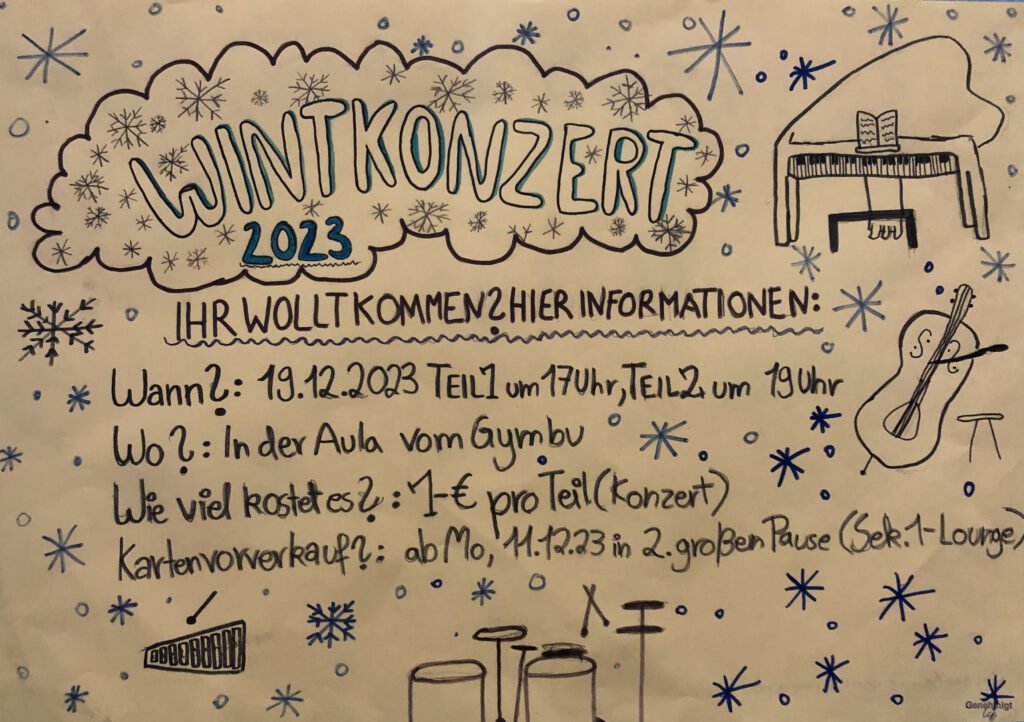 WINTKONZERT
2023
IHR WOLLT KOMMEN? HIER INFORMATIONEN:
Wann?: 19.12.2023 TEIL1 um 17Uhr, TEIL2 um 19Uhr
Wo?: In der Aula vom Gymbu
Wie viel kostet es?: 1-€ pro Teil (Konzert)
Kartenvorverkauf?: ab Mo, 11.12.23 in 2. großen Pause (Sek.1-Lounge)
Genehmigt